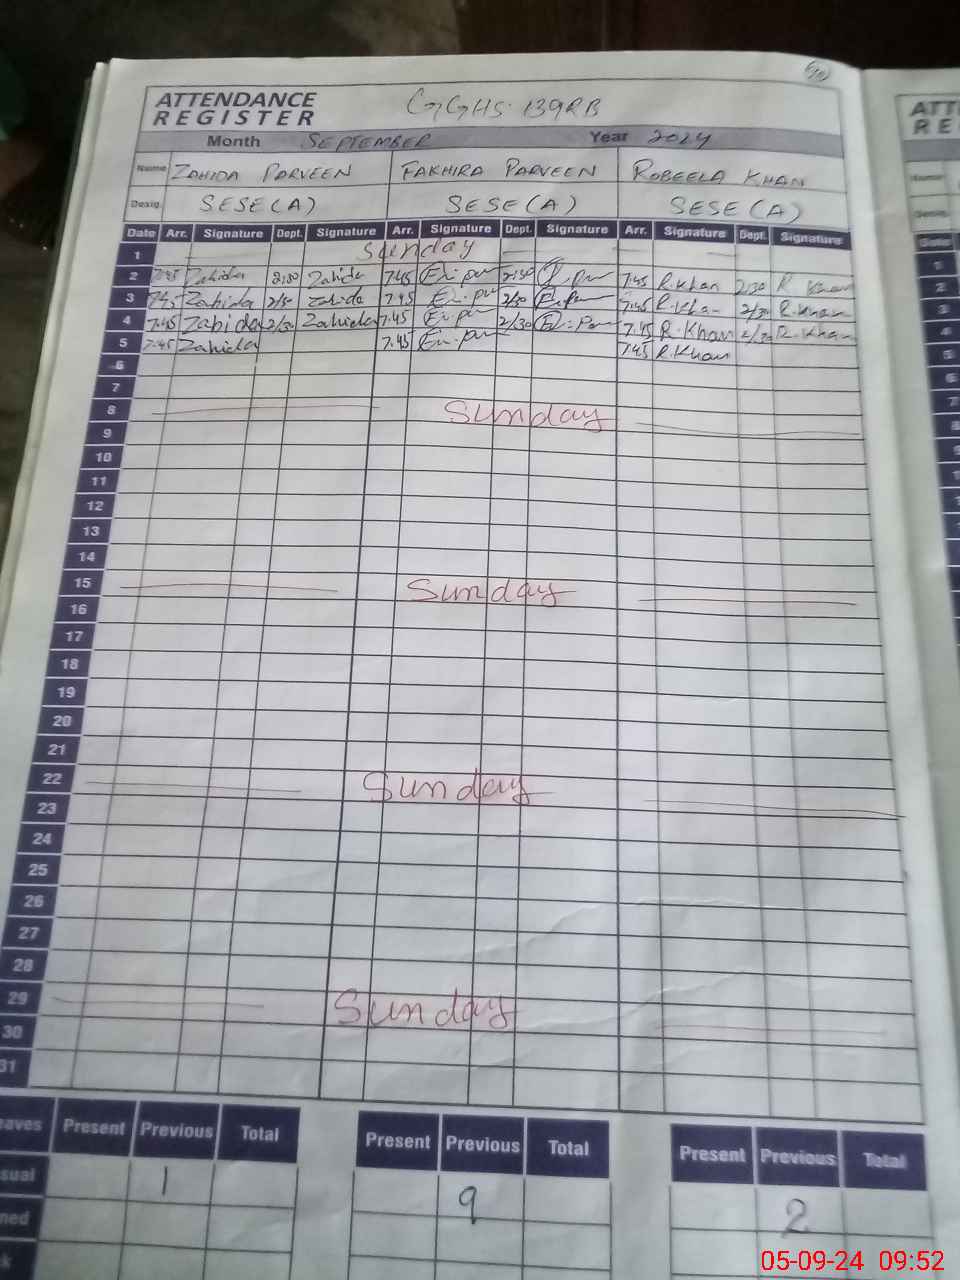 ATTENDANCE REGISTER
GGHS 139RB
Month SEPTEMBER Year 2024
Name ZAHIDA PARVEEN FAKHIRA PARVEEN ROBEELA KHAN
Desig. SESE(A) SESE(A) SESE(A)
Date Arr. Signature Dept. Signature Arr. Signature Dept. Signature Arr. Signature Dept. Signature
1 Sunday
2 7:45 Zahida 2:30 Zahida 7:45 2:30 7:45 R.Khan 2:30 R Khan
3 7:45 Zahida 2/30 Zahida 7:45 2/30 7:45 R.Khan 2/30 R.Khan
4 7:45 Zahida 2/30 Zahida 7:45 2/30 7:45 R.Khan 2/30 R.Khan
5 7:45 Zahida 7:45 7:45 R.Khan
6
7
8 Sunday
9
10
11
12
13
14
15 Sunday
16
17
18
19
20
21
22 Sunday
23
24
25
26
27
28
29 Sunday
30
31
eaves Present Previous Total Present Previous Total Present Previous Total
sual 1 9 2
ned
k
ATT
RE
05-09-24 09:52